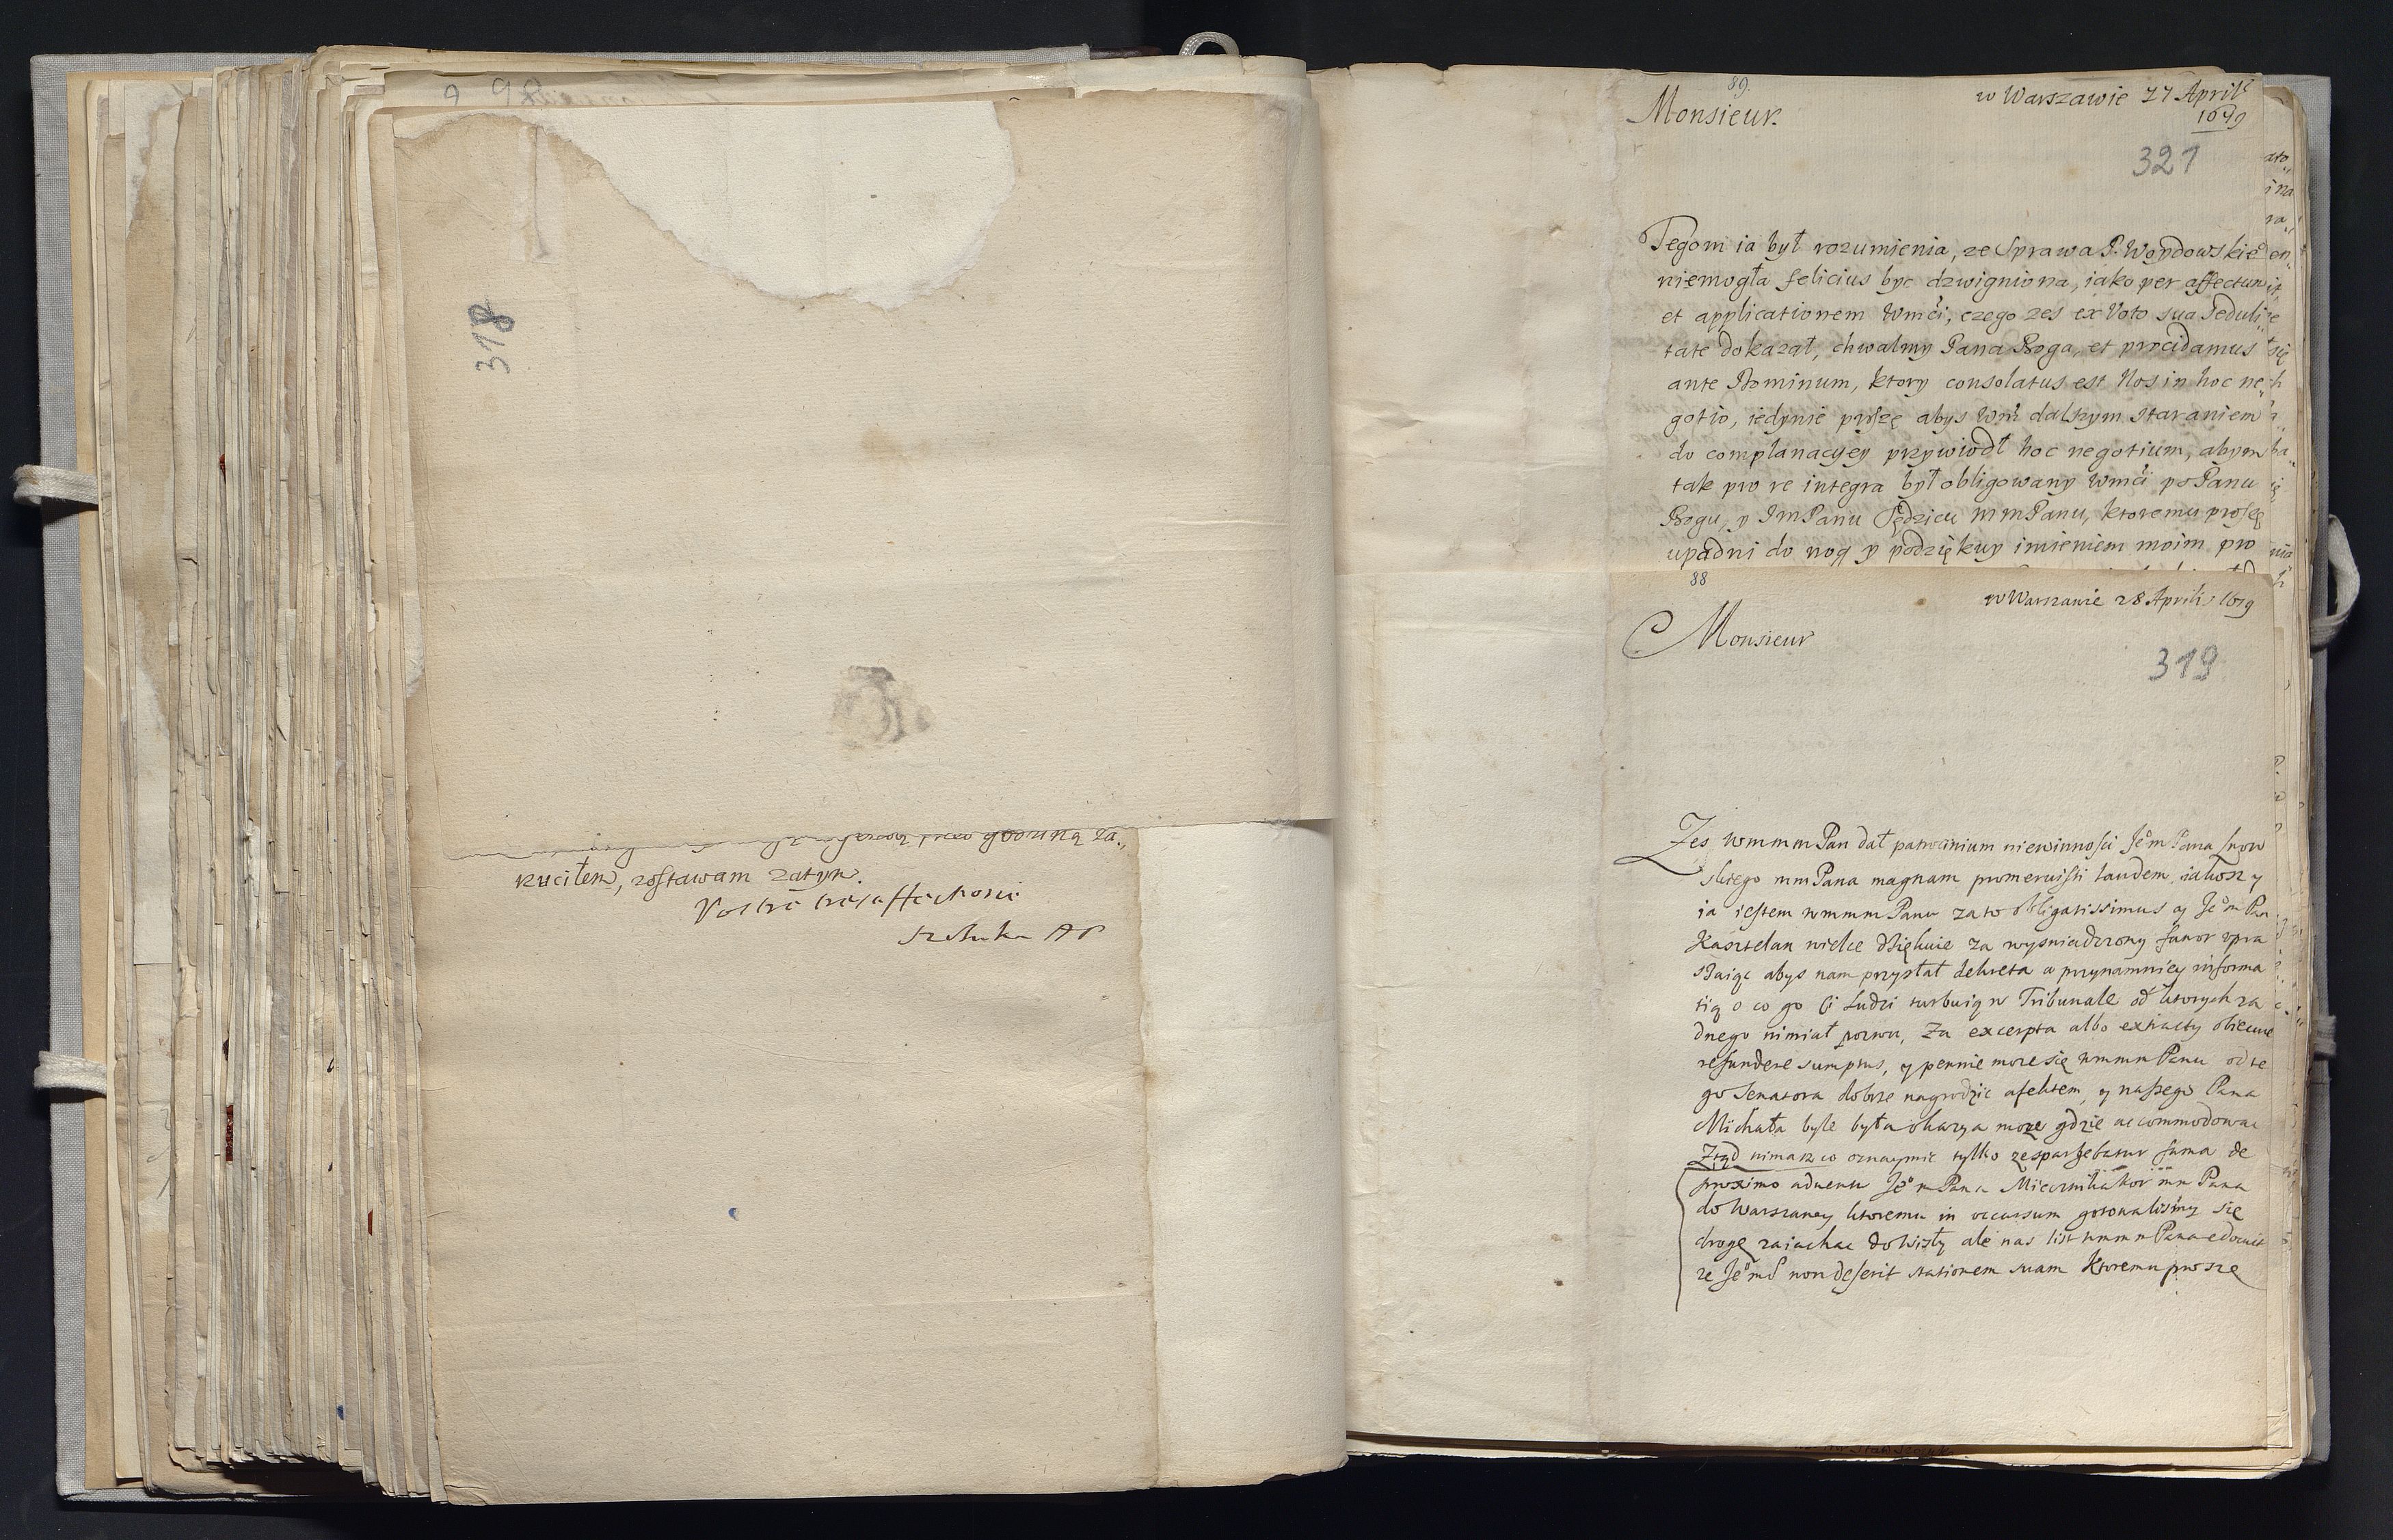 318
godziną za.,
ruciłem, zostawam zatym.
Szczuka AP
89.
w Warszawie 27 Aprilis
1679
Monsieur.
321
Tegom ia był rozumienia, ze Sprawa P. Woydowskieo
niemogła felicius byc dzwigniona, iako per affectum
et applicationem Wmści, czego zes ex Voto sua Seduli"
tate dokazał, chwalmy Pana Boga, et procidamus
ante Dominum, ktory consolatus est Nos in hoc ne"
gotio, iedynie proszę abys Wm dalszym staraniem
do complanacyey przywiodł hoc negotium, abym
tak pro re integra był obligowany Wmści po Panu
Bogu, y ImPanu Sędzicu mmPanu, ktoremu proszę
upadni do nog y podziękuy imieniem moim pro
88
w Warszawie 28 Aprilis 1679
Monsieur
319
Zes wmmmPan dał patrocinium niewinnosci Jeom Pana
skiego mmPana magnam promeruisti laudem, iakosz y
ia iestem wmmmPanu za to obligatissimus ay Jeom Pan
Kasztelan wielce dziękuie za wyswiadczony fawor upra
szaiąc abys nam przysłał dekreta a przynamniey informa
tią o co go ci ludzi turbuią w Tribunale od ktorych za
dnego nimiał pozwu, Za excerpta albo extracty obiecuie
refundere sumptus, y pewnie moze się wmmmPanu od te
go Senatora dobrze nagrodzic afektem, y naszego Pana
Michała byle była okazya moze gdzie accommodowac
Ztąd nimasz co oznaymic tylko ze spargebatur fama de
proximo adventu Jeom Pana Miecznika kor mm Pana
do Warszawy ktoremu in occursum gotowalismy się
drogę zaiachac do Wisły ale nas list wmmmPana edocuit
ze Jeomć non deserit stationem suam Ktoremu proszę